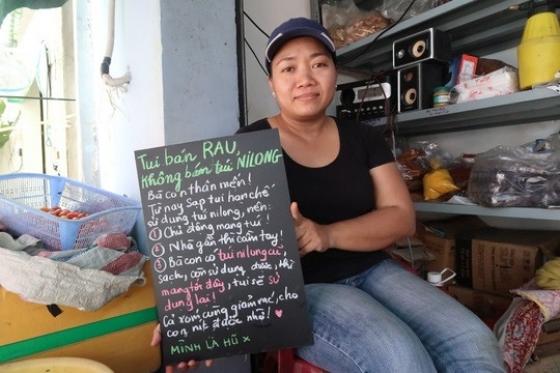 Tui bán RAU,
Không bám túi NILONG
Bà con thân mến!
Từ nay Sạp tui hạn chế
sử dụng túi nilong, nên:
① Chủ động mang túi!
② Nhà gần thì cầm tay!
③ Bà con có túi nilong cũ,
sạch, còn sử dụng được, thì
mang tới đây, tui sẽ sử
dụng lại!
Cả xóm cùng giảm nhé, cho
con nít được nhờ!
MÌNH LÀ HŨ x